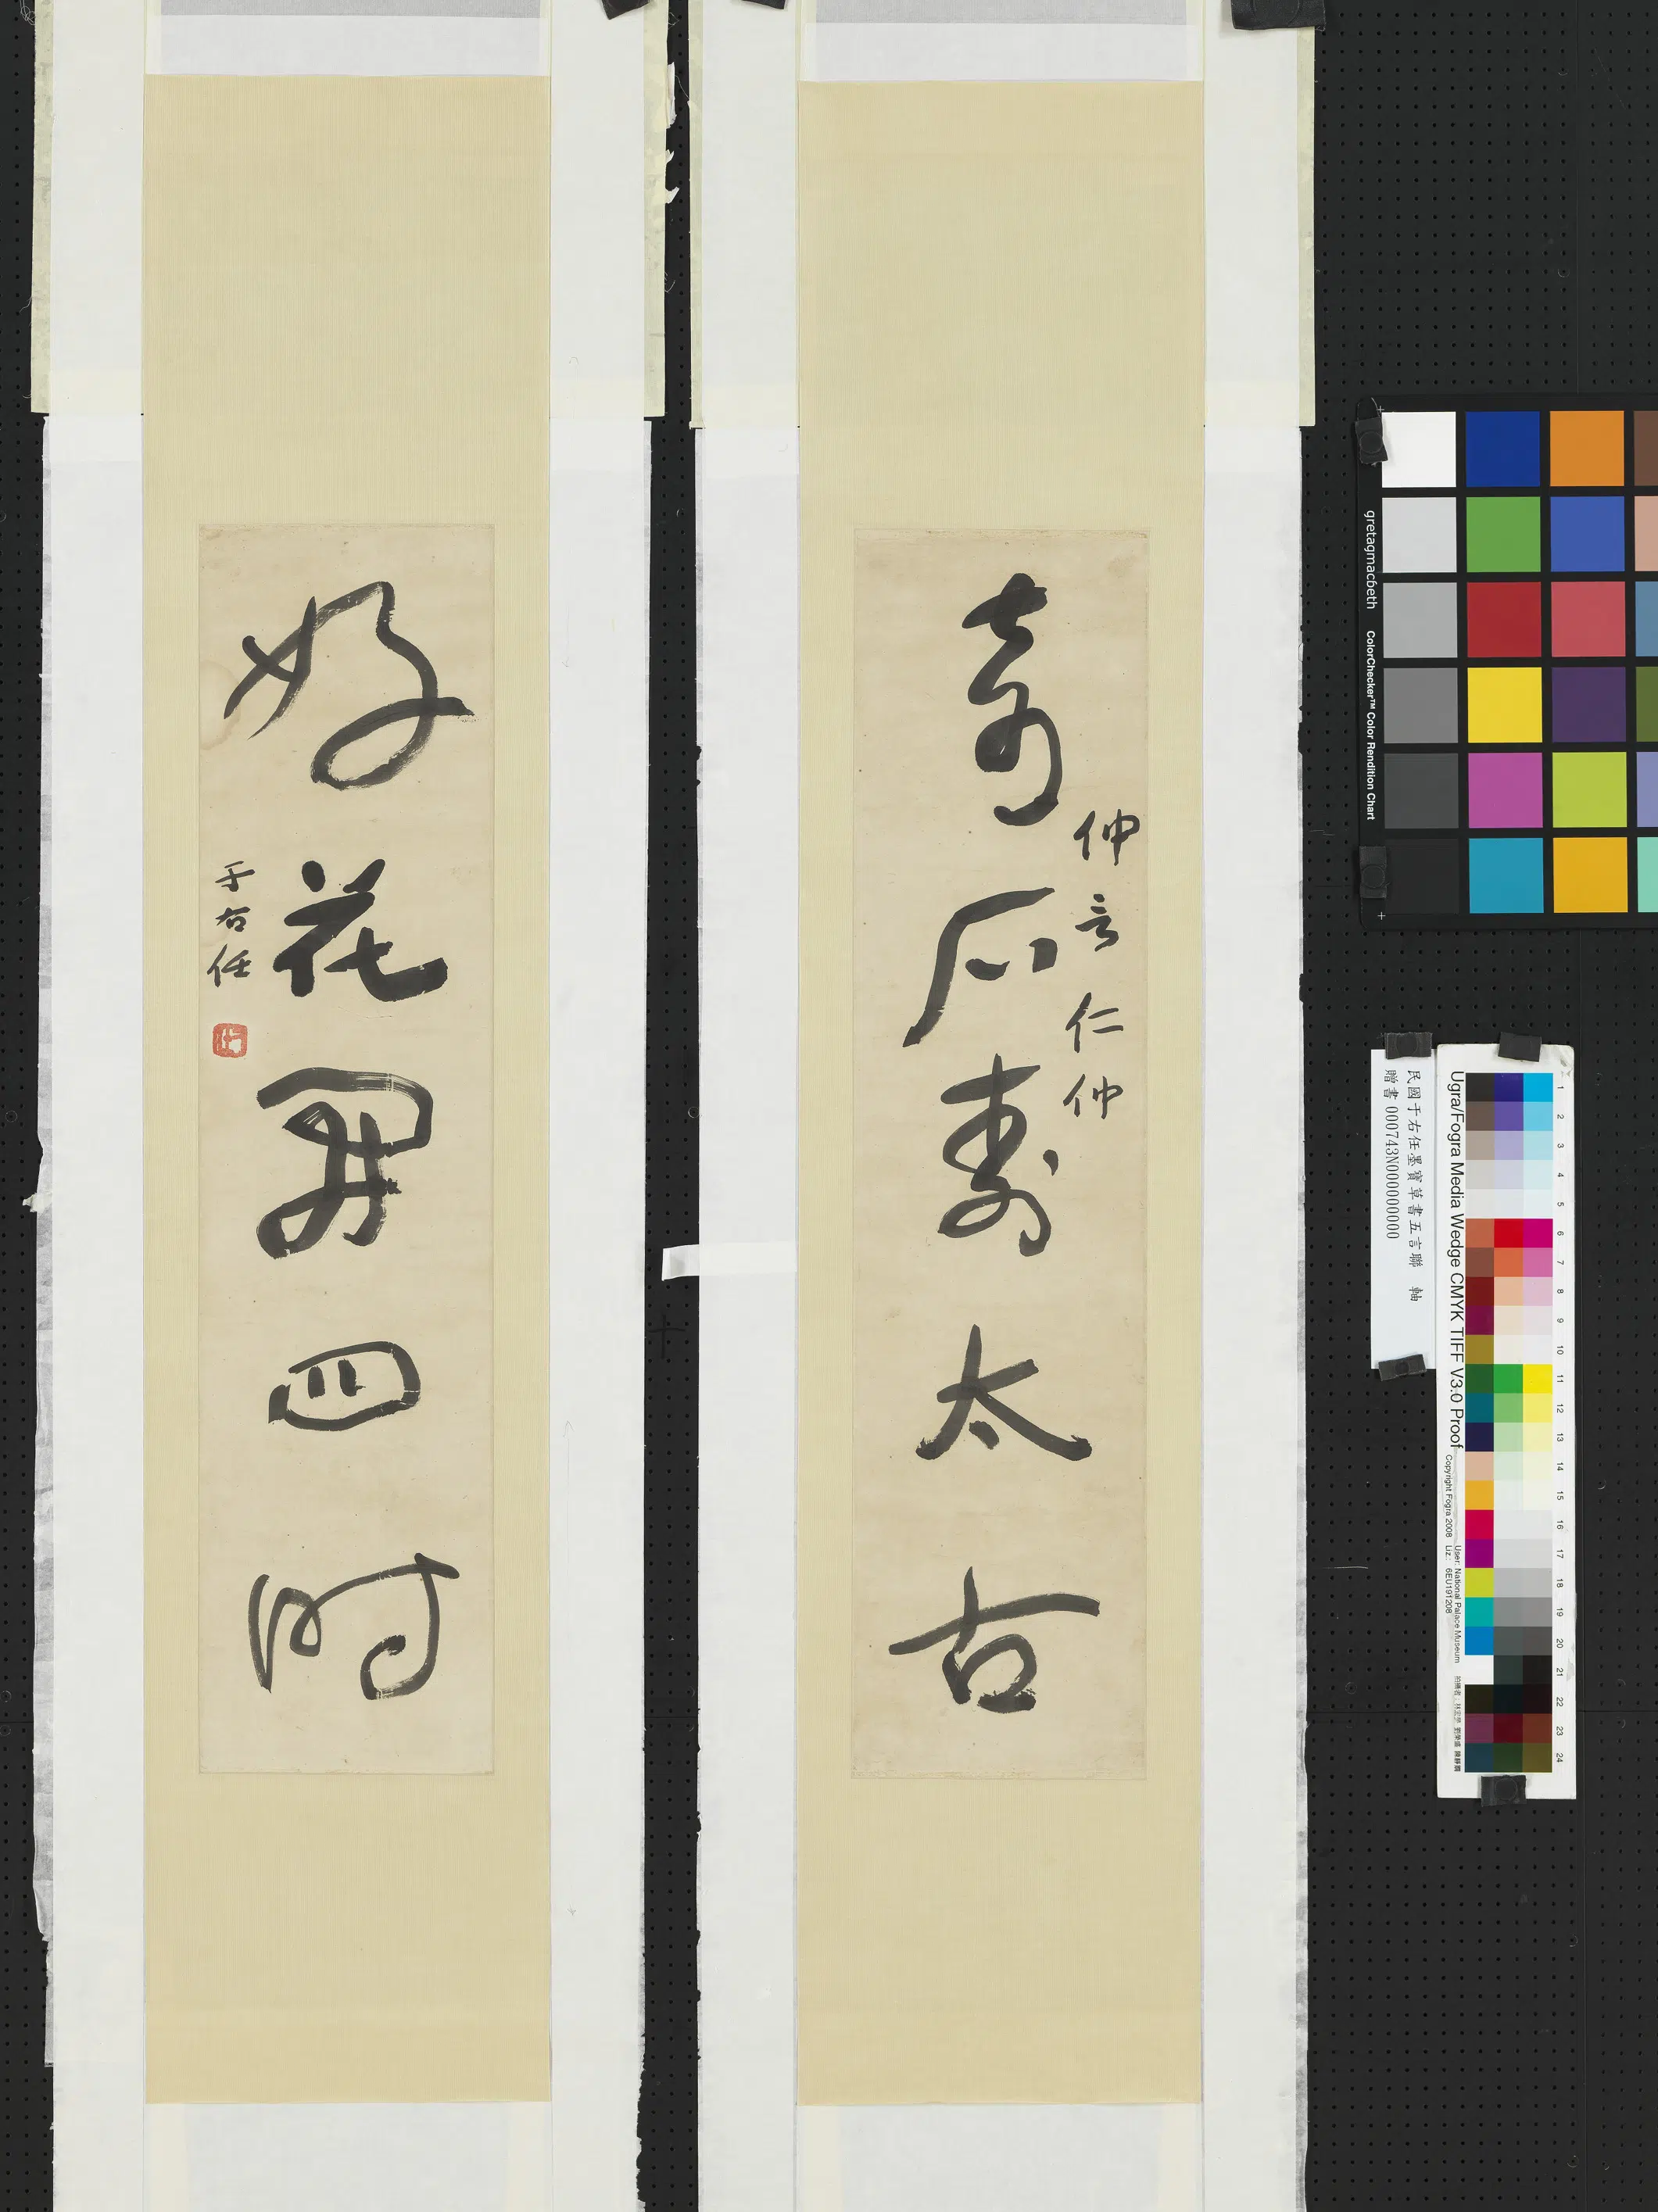 奇石壽太古
仲言仁仲
好花開四時
于右任
gretagmacbeth
ColorChecker™ Color Rendition Chart
民國于右任墨寶草書五言聯 軸
贈書 000743N000000000
Ugra/Fogra Media Wedge CMYK TIFF V3.0 Proof
Copyright Fogra 2008
Liz.: 6EU191208
User: National Palace Museum
1
2
3
4
5
6
7
8
9
10
11
12
13
14
15
16
17
18
19
20
21
22
23
24